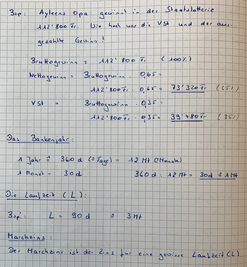 Bsp: Ayleens Opa gewinnt in der Staatslotterie
112'800 Fr. Wie hoch war die VSt und der aus-
gezahlte Gewinn?
Bruttogewinn = 112'800 Fr. (100%)
Nettogewinn = Bruttogewinn · 0,65 =
112'800 Fr. · 0,65 = 73'320 Fr. (65%)
VSt = Bruttogewinn · 0,35 =
112'800 Fr. · 0,35 = 39'480 Fr. (35%)
Das Bankenjahr:
1 Jahr ≙ 360 d (= Tage) = 12 Mt (Monate)
1 Monat = 30 d 360 d : 12 Mt = 30d ≙ 1Mt
Die Laufzeit (L):
Bsp: L = 90 d ≙ 3 Mt
Marchzins:
Der Marchzins ist der Zins für eine gewisse Laufzeit (L).